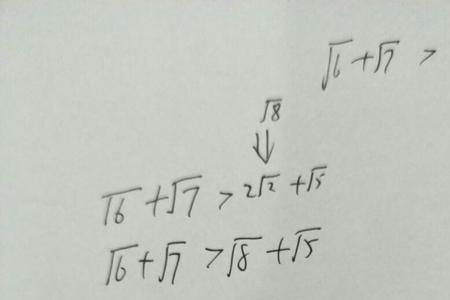 √6 + √7 >
√8
⇓
√6 + √7 > 2√2 + √5
√6 + √7 > √8 + √5